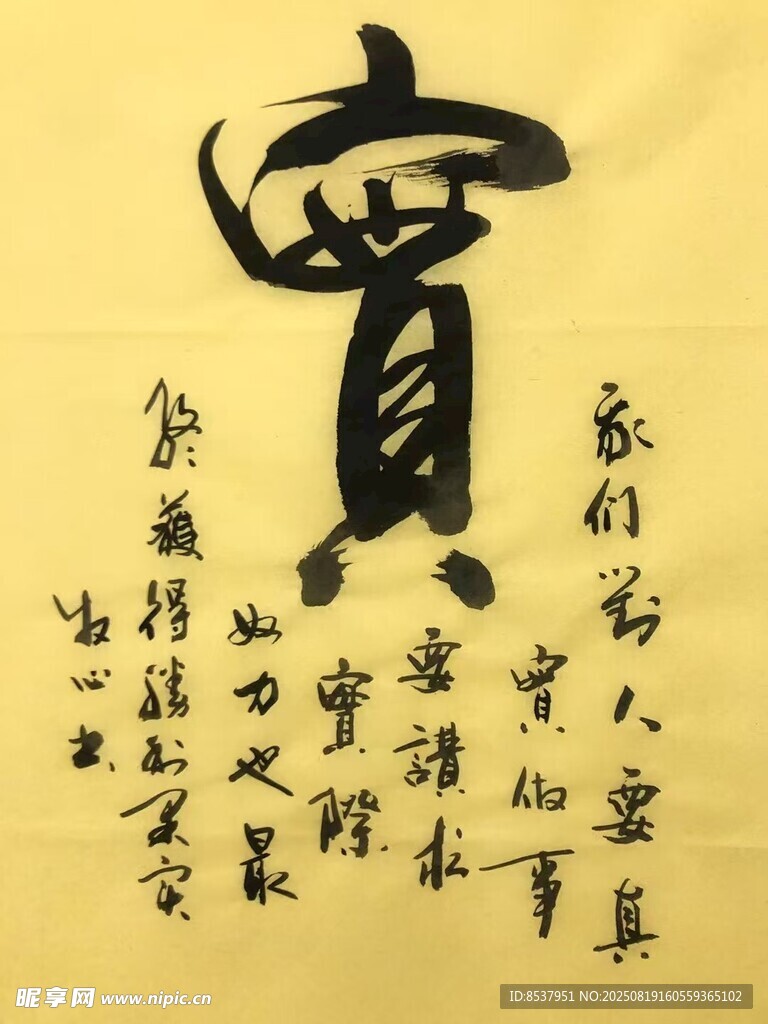 實
我们對人要真
實做事
要讃求
實際
奴力也最
終獲得勝利果实
牧心书
昵享网 www.nipic.cn
ID:8537951 NO:20250819160559365102